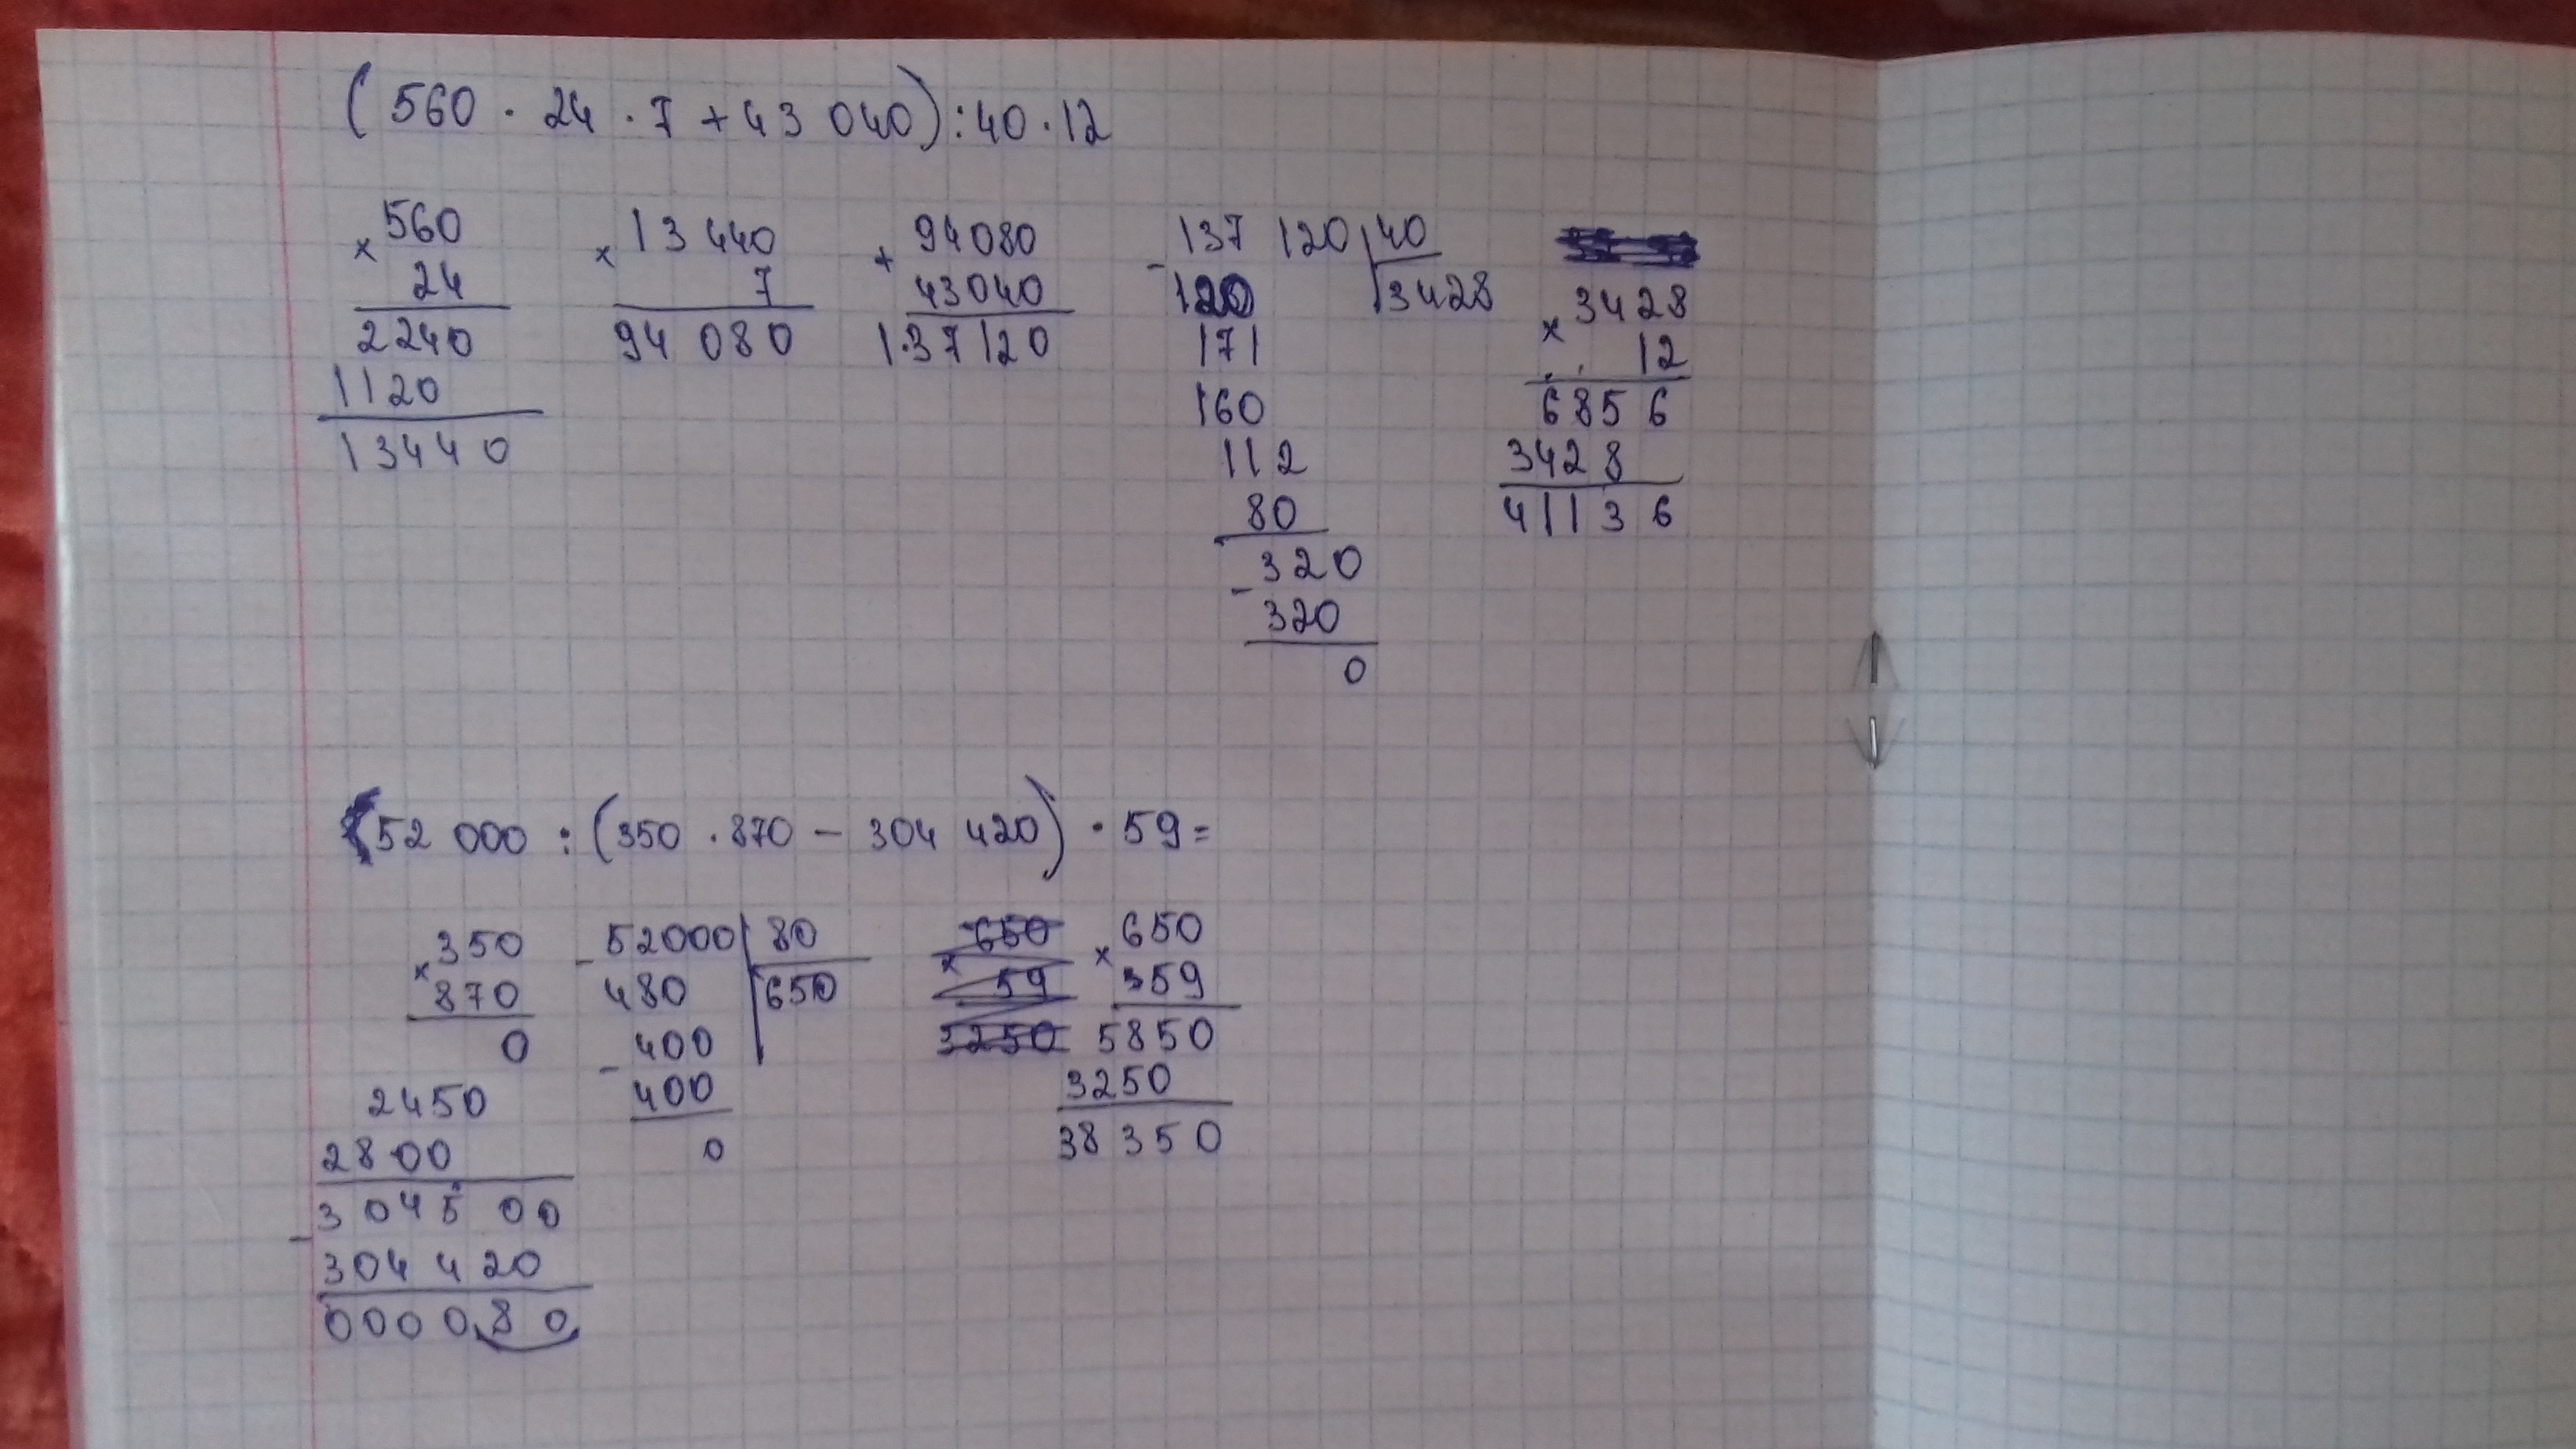 (560 · 24 · 7 + 43 040) : 40 · 12
× 560
24
2240
1120
13440
× 13 440
7
94 080
+ 94080
43040
137120
- 137 120 | 40
120 | 3428
171
160
112
80
- 320
320
0
× 3428
12
6856
3428
41136
52 000 : (350 · 870 - 304 420) · 59 =
× 350
870
0
2450
2800
- 304500
304420
000080
- 52000 | 80
480 | 650
- 400
400
0
× 650
59
3250
× 650
359
5850
3250
38350